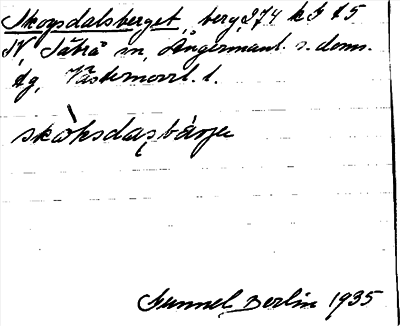 Skogsdalsberget, berg, 274 k I 15
N, Sätrå sn, Ångermanl. s. doms.
tg, Västernorrl. l.
skòksdasbárje
Gunnel Berlin 1935